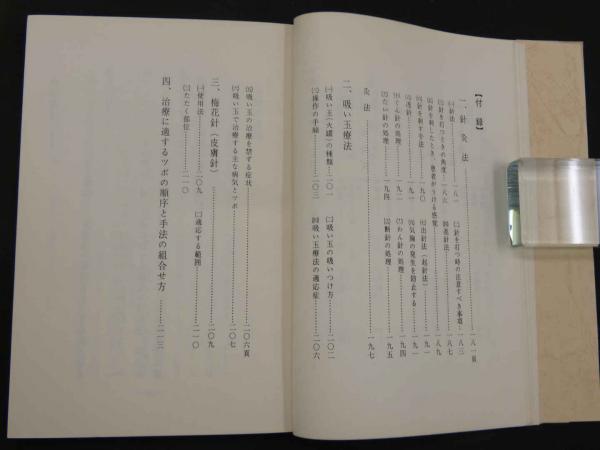 【付録】
一、針灸法……一八一頁
㈠針法……一八一　㈡針を打つ時の注意すべき事項…一八三
㈢針を打つときの角度…一八六　㈣進針法……一八七
㈤針を刺したとき、患者がうける感覚……一八九
㈥針を刺す手法……一九〇　㈦出針法（起針法）……一九一
㈧透針……一九一　㈨気胸の発生を防止する……一九一
㈩くん針の処理……一九二　㈡わん針の処理……一九四
㈢たい針の処理……一九四　㈢断針の処理……一九五
灸法……一九七
二、吸い玉療法
㈠吸い玉（火罐）の種類…二〇一　㈡吸い玉の吸いつけ方…二〇二
㈢操作の手順……二〇三　㈣吸い玉療法の適応症……二〇六
㈤吸い玉の治療を禁ずる症状……二〇六頁
㈥吸い玉で治療する主な病気とツボ……二〇七
三、梅花針（皮膚針）……二〇九
㈠使用法……二〇九　㈡適応する範囲……二一〇
㈢たたく部位……二一〇
四、治療に適するツボの順序と手法の組合せ方……二一三